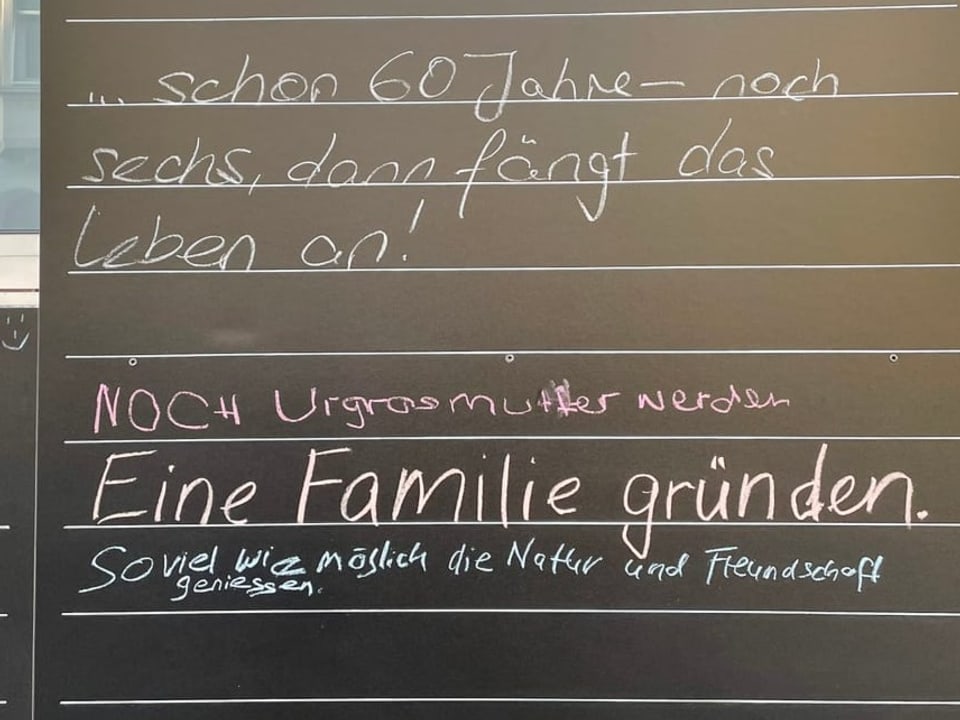 ... schon 60 Jahre – noch
sechs, dann fängt das
Leben an!
NOCH Urgrosmutter werden
Eine Familie gründen.
Soviel wie möglich die Natur und Freundschaft
geniessen.